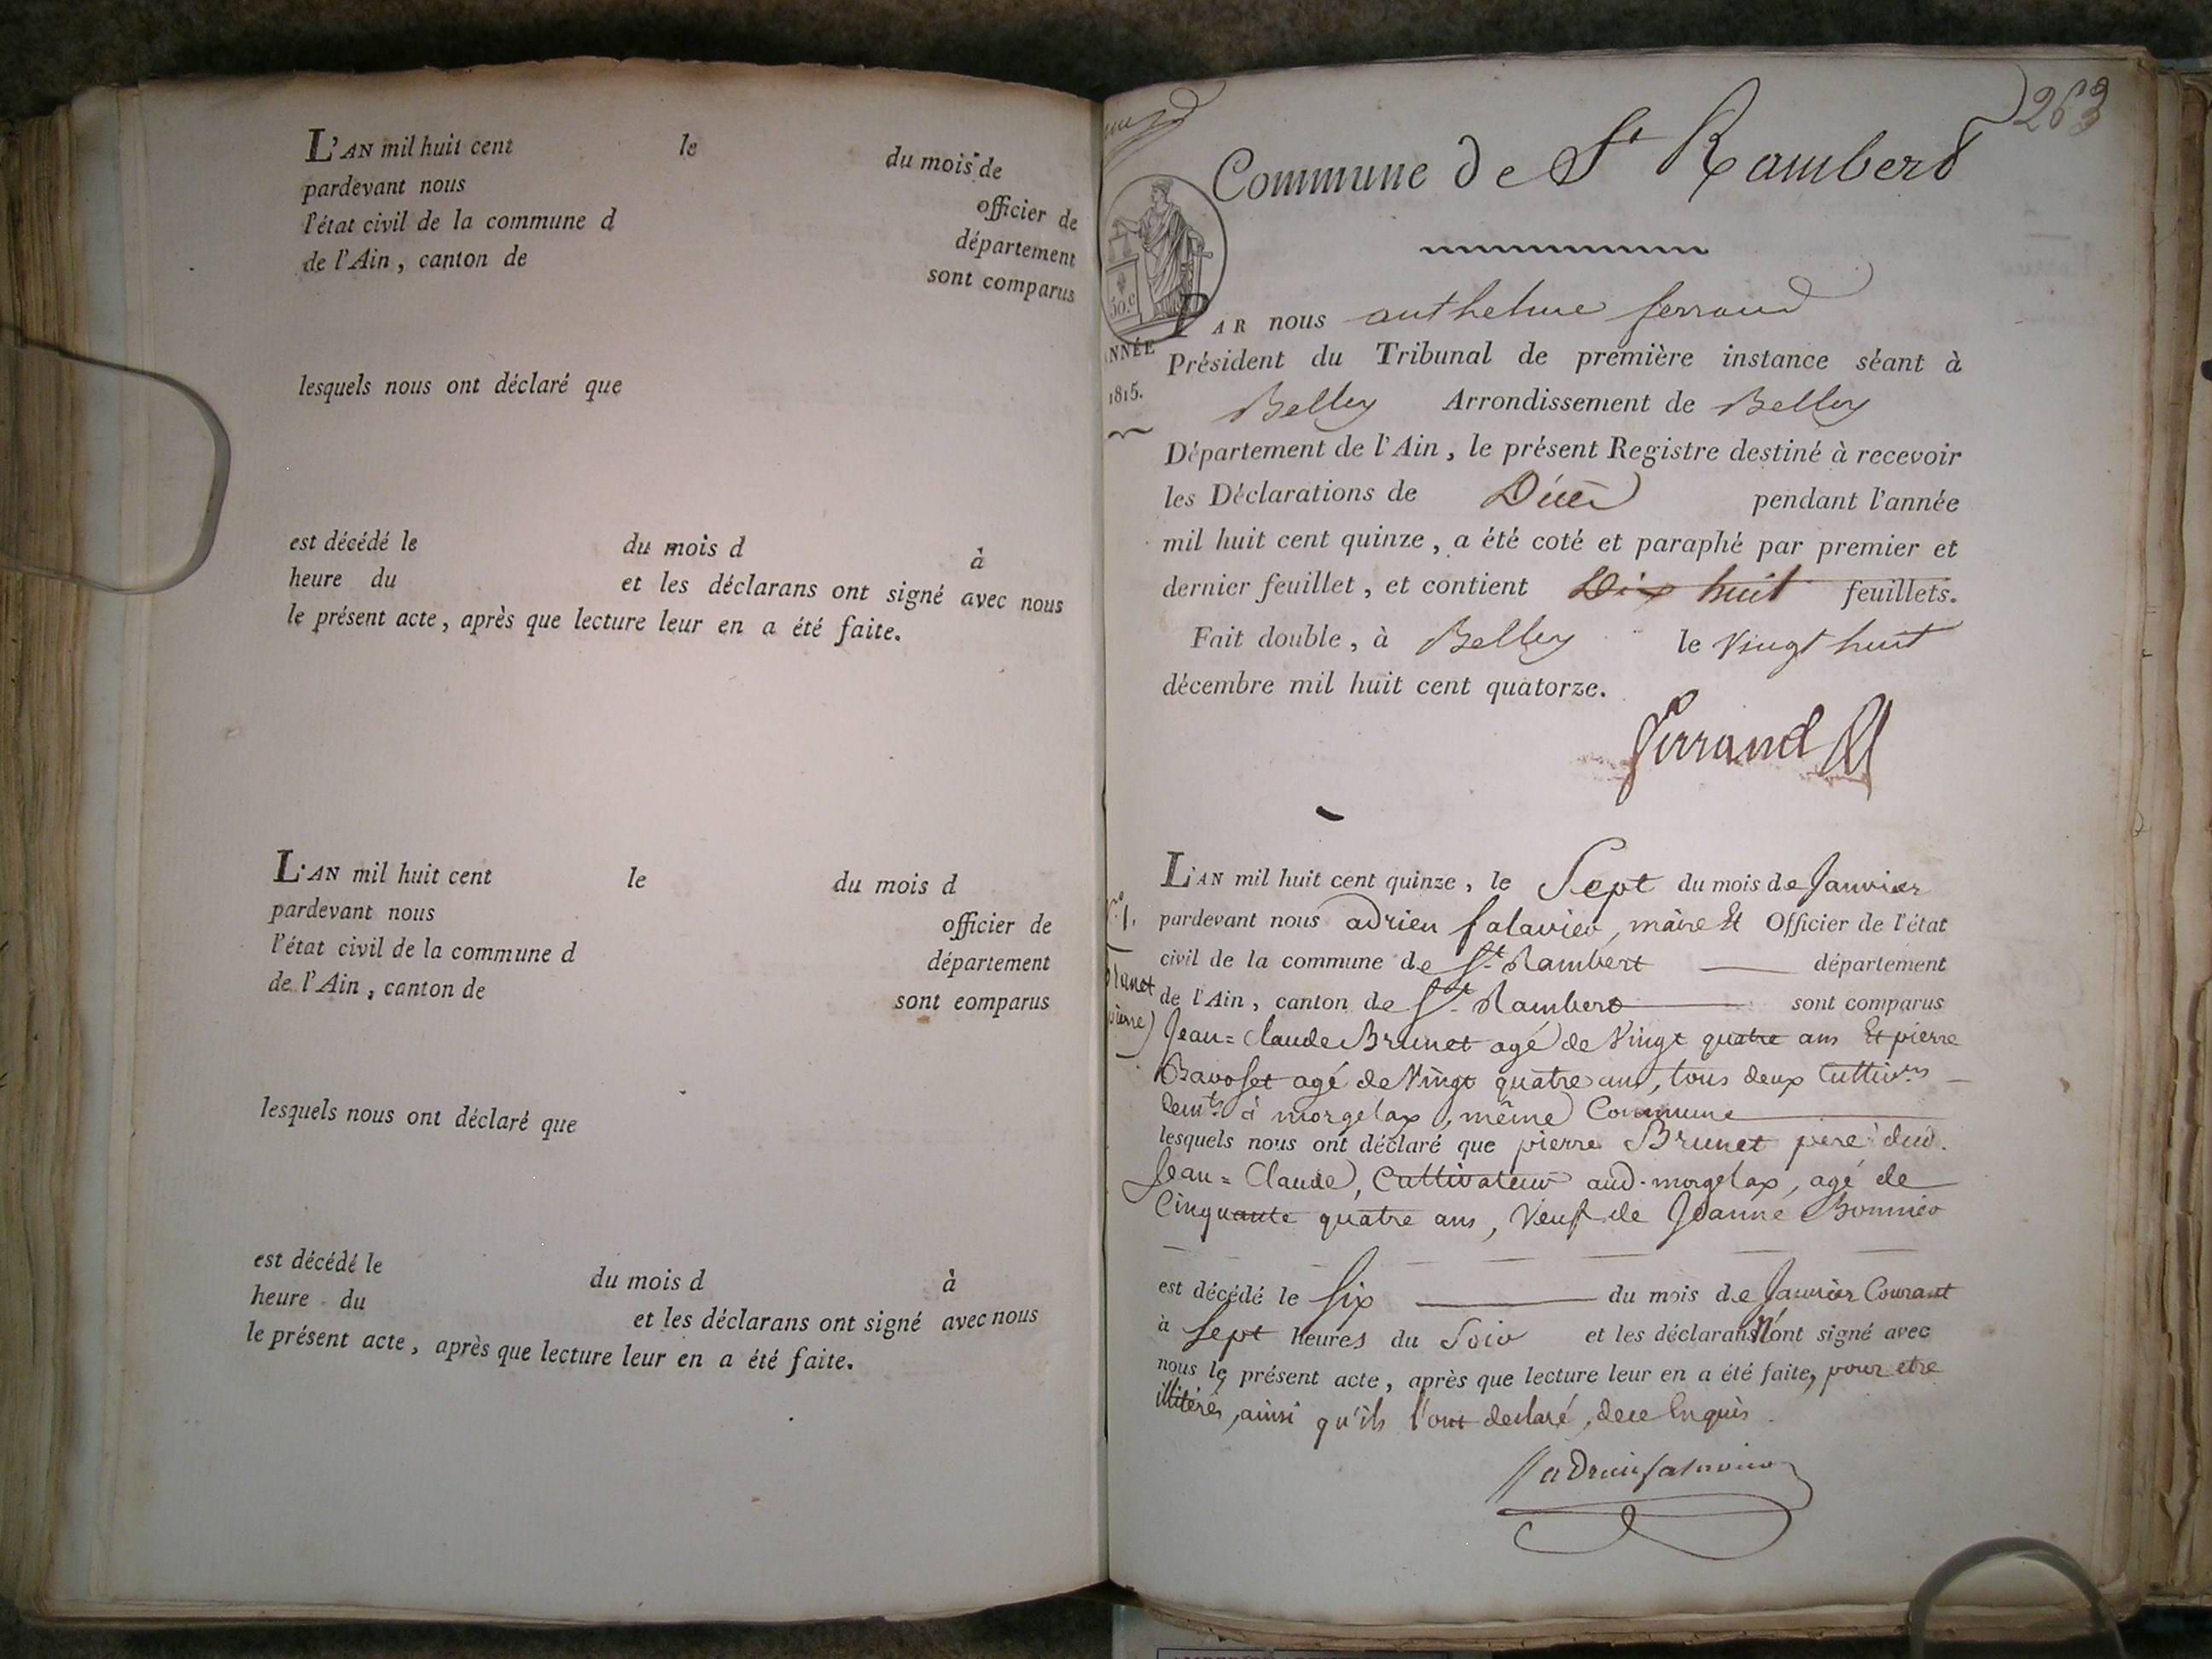 L'AN mil huit cent le du mois de
pardevant nous officier de
l'état civil de la commune d département
de l'Ain, canton de sont comparus
lesquels nous ont déclaré que
est décédé le du mois d à
heure du et les déclarans ont signé avec nous
le présent acte, après que lecture leur en a été faite.
L'AN mil huit cent le du mois d
pardevant nous officier de
l'état civil de la commune d département
de l'Ain, canton de sont eomparus
lesquels nous ont déclaré que
est décédé le du mois d à
heure du et les déclarans ont signé avec nous
le présent acte, après que lecture leur en a été faite.
263
Commune de St Rambert
50.c
ANNÉE
1815.
PAR nous anthelme ferrand
Président du Tribunal de première instance séant à
Belley Arrondissement de Belley
Département de l'Ain, le présent Registre destiné à recevoir
les Déclarations de Décès pendant l'année
mil huit cent quinze, a été coté et paraphé par premier et
dernier feuillet, et contient Dix huit feuillets.
Fait double, à Belley le Vingt huit
décembre mil huit cent quatorze.
ferrand
L'AN mil huit cent quinze, le Sept du mois de Janvier
pardevant nous adrien falavier, maire Et Officier de l'état
civil de la commune de St. Rambert département
de l'Ain, canton de St. Rambert sont comparus
Jean=Claude Brunet agé de Vingt quatre ans Et pierre
Bavoset agé de Vingt quatre ans, tous deux Cultivrs
demts à morgelax, même Commune
lesquels nous ont déclaré que pierre Brunet père dud.
Jean=Claude, Cultivateur aud. morgelax, agé de
Cinquante quatre ans, Veuf de Jeanne Bonnier
est décédé le Six du mois de Janvier Courant
à Sept heures du Soir et les déclarans n'ont signé avec
nous le présent acte, après que lecture leur en a été faite, pour etre
illitérés, ainsi qu'ils l'ont declaré, de ce Enquis.
adrien falavier